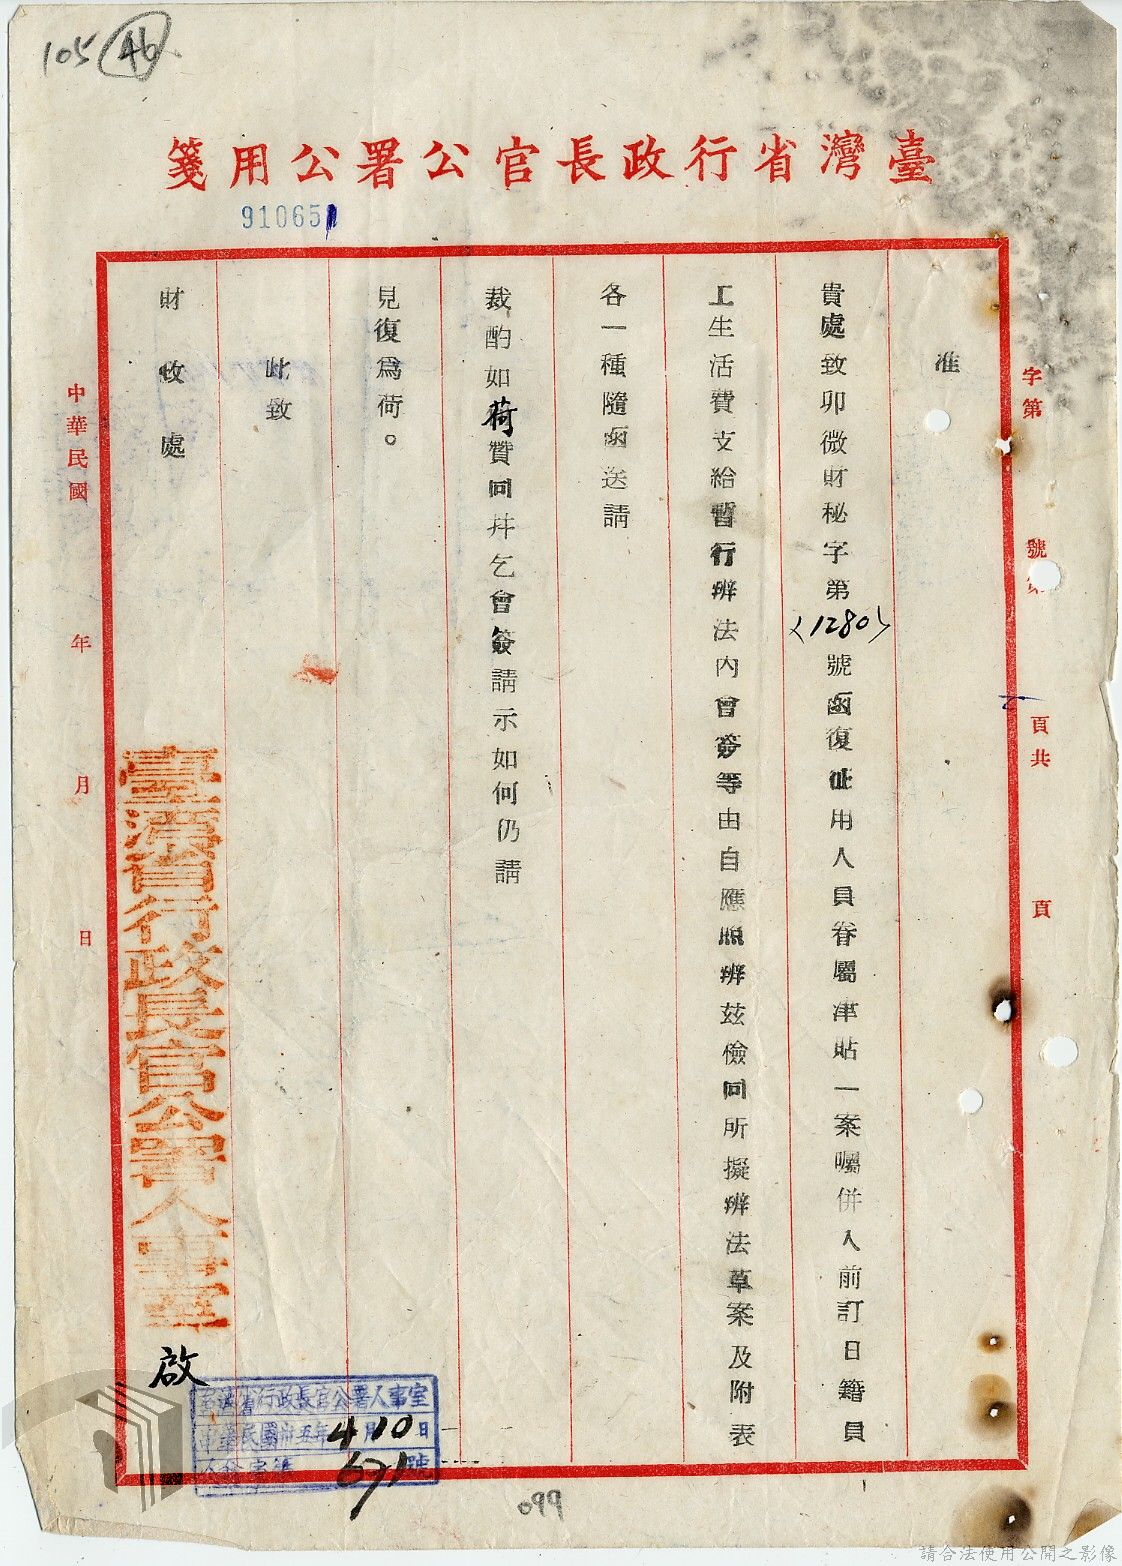 105 46
臺灣省行政長官公署公用箋
91065
字第 號第 頁共 頁
准
貴處致卯微財秘字第(1280)號函復征用人員眷屬津貼一案囑併入前訂日籍員
工生活費支給暫行辦法內會簽等由自應照辦茲儉同所擬辦法草案及附表
各一種隨函送請
裁酌如荷贊同并乞會簽請示如何仍請
見復為荷。
此致
財政處
臺灣省行政長官公署人事室 啟
中華民國 年 月 日
臺灣省行政長官公署人事室
中華民國卅五年4月10日
字第671號
099
請合法使用公開之影像